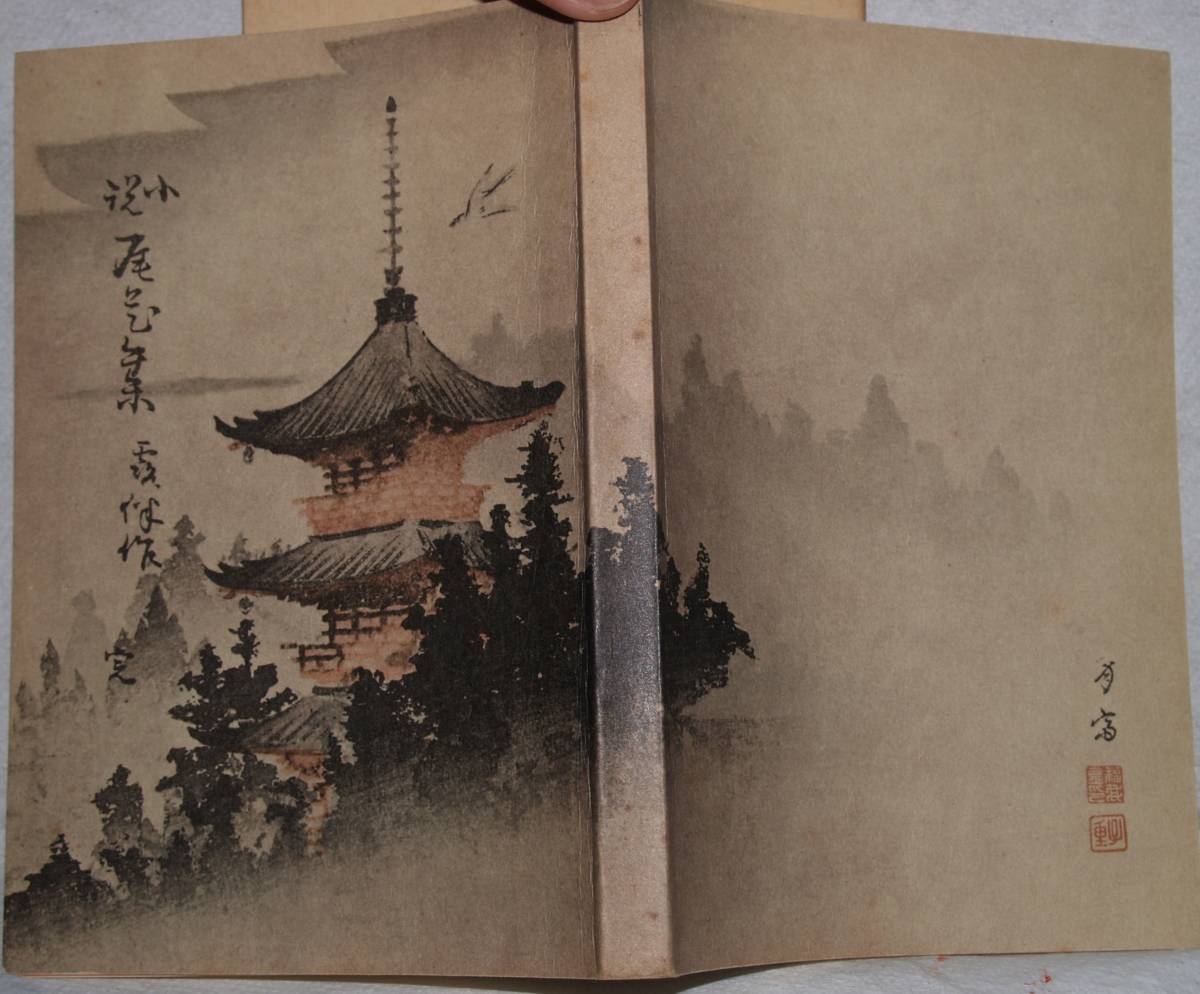 小説 尾花集 露伴作 完
月窓